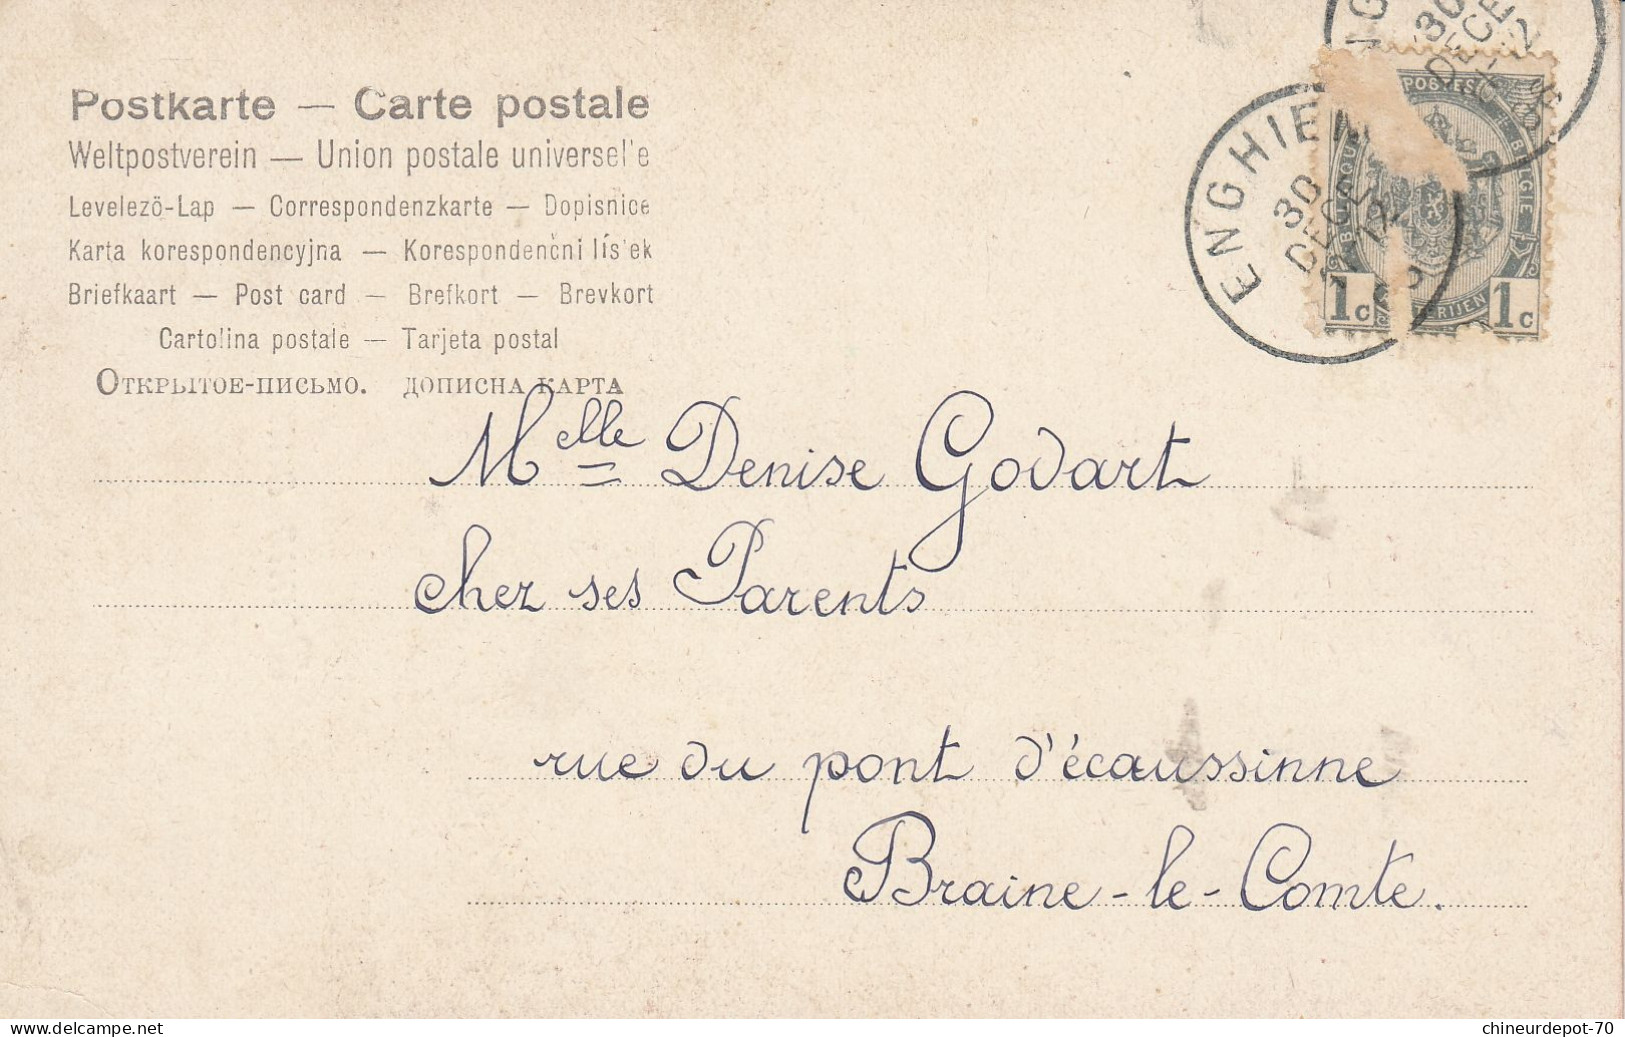 Postkarte — Carte postale
Weltpostverein — Union postale universel'e
Levelezö-Lap — Correspondenzkarte — Dopisnice
Karta korespondencyjna — Korespondenčni lís'ek
Briefkaart — Post card — Brefkort — Brevkort
Cartolina postale — Tarjeta postal
Открытое-письмо. дописна карта
ENGHIEN
30
DECE
12
30
DECE
12
POSTES
BELGIE
1c
1c
Mlle Denise Godart
chez ses Parents
rue du pont d'écaussinne
Braine-le-Comte.
Delcampe.net
chineurdepot-70